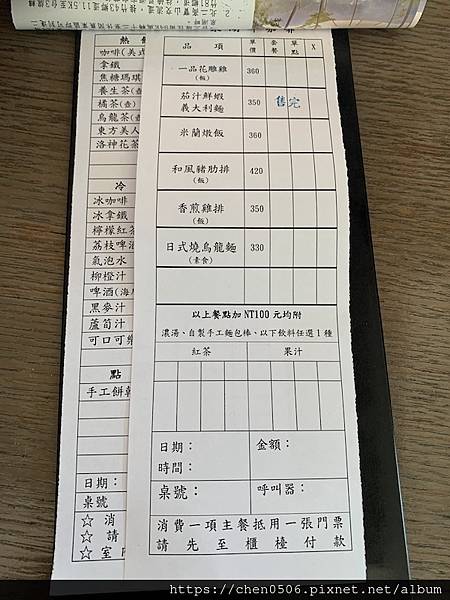 熱
咖啡(美式
拿鐵
焦糖瑪琪
養生茶(壺)
橘茶(壺)
烏龍茶(壺)
東方美人
洛神花茶
冷
冰咖啡
冰拿鐵
檸檬紅茶
荔枝啤酒
氣泡水
柳橙汁
啤酒(海
黑麥汁
蘆筍汁
可口可樂
點
手工餅乾
日期：
桌號
☆ 消
☆ 請
☆ 室
品 項 單價 套餐 單點 X
一品花雕雞 (飯) 360
茄汁鮮蝦義大利麵 350 售完
米蘭燉飯 360
和風豬肋排 (飯) 420
香煎雞排 (飯) 350
日式燒烏龍麵 (素食) 330
以上餐點加 NT100 元均附
濃湯、自製手工麵包棒、以下飲料任選 1 種
紅茶 果汁
日期： 金額：
時間：
桌號： 呼叫器：
消費一項主餐抵用一張門票
請先至櫃檯付款
https://chen0506.pixnet.net/album